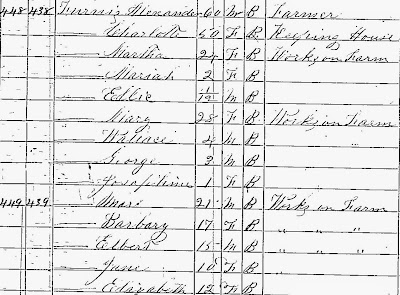 448 438 Furnis Alexander 60 M B Farmer
— Charlott 50 F B Keeping House
— Martha 24 F B Works on Farm
— Mariah 2 F B
— Eddie 1/12 M B
— Mary 28 F B Works on Farm
— Wallace 4 M B
— George 2 M B
— Josephine 1 F B
449 439 — 21 M B Works on Farm
— Barbary 17 F B " " "
— Elbert 15 M B " " "
— Jane 10 F B
— Elizabeth 12 F B